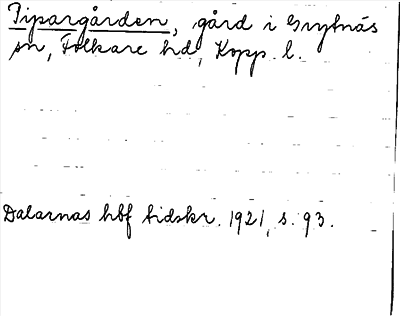 Tipargården, gård i Grytnäs
sn, Folkare hd, Kopp. l.
Dalarnas hbf tidskr. 1921, s. 93.